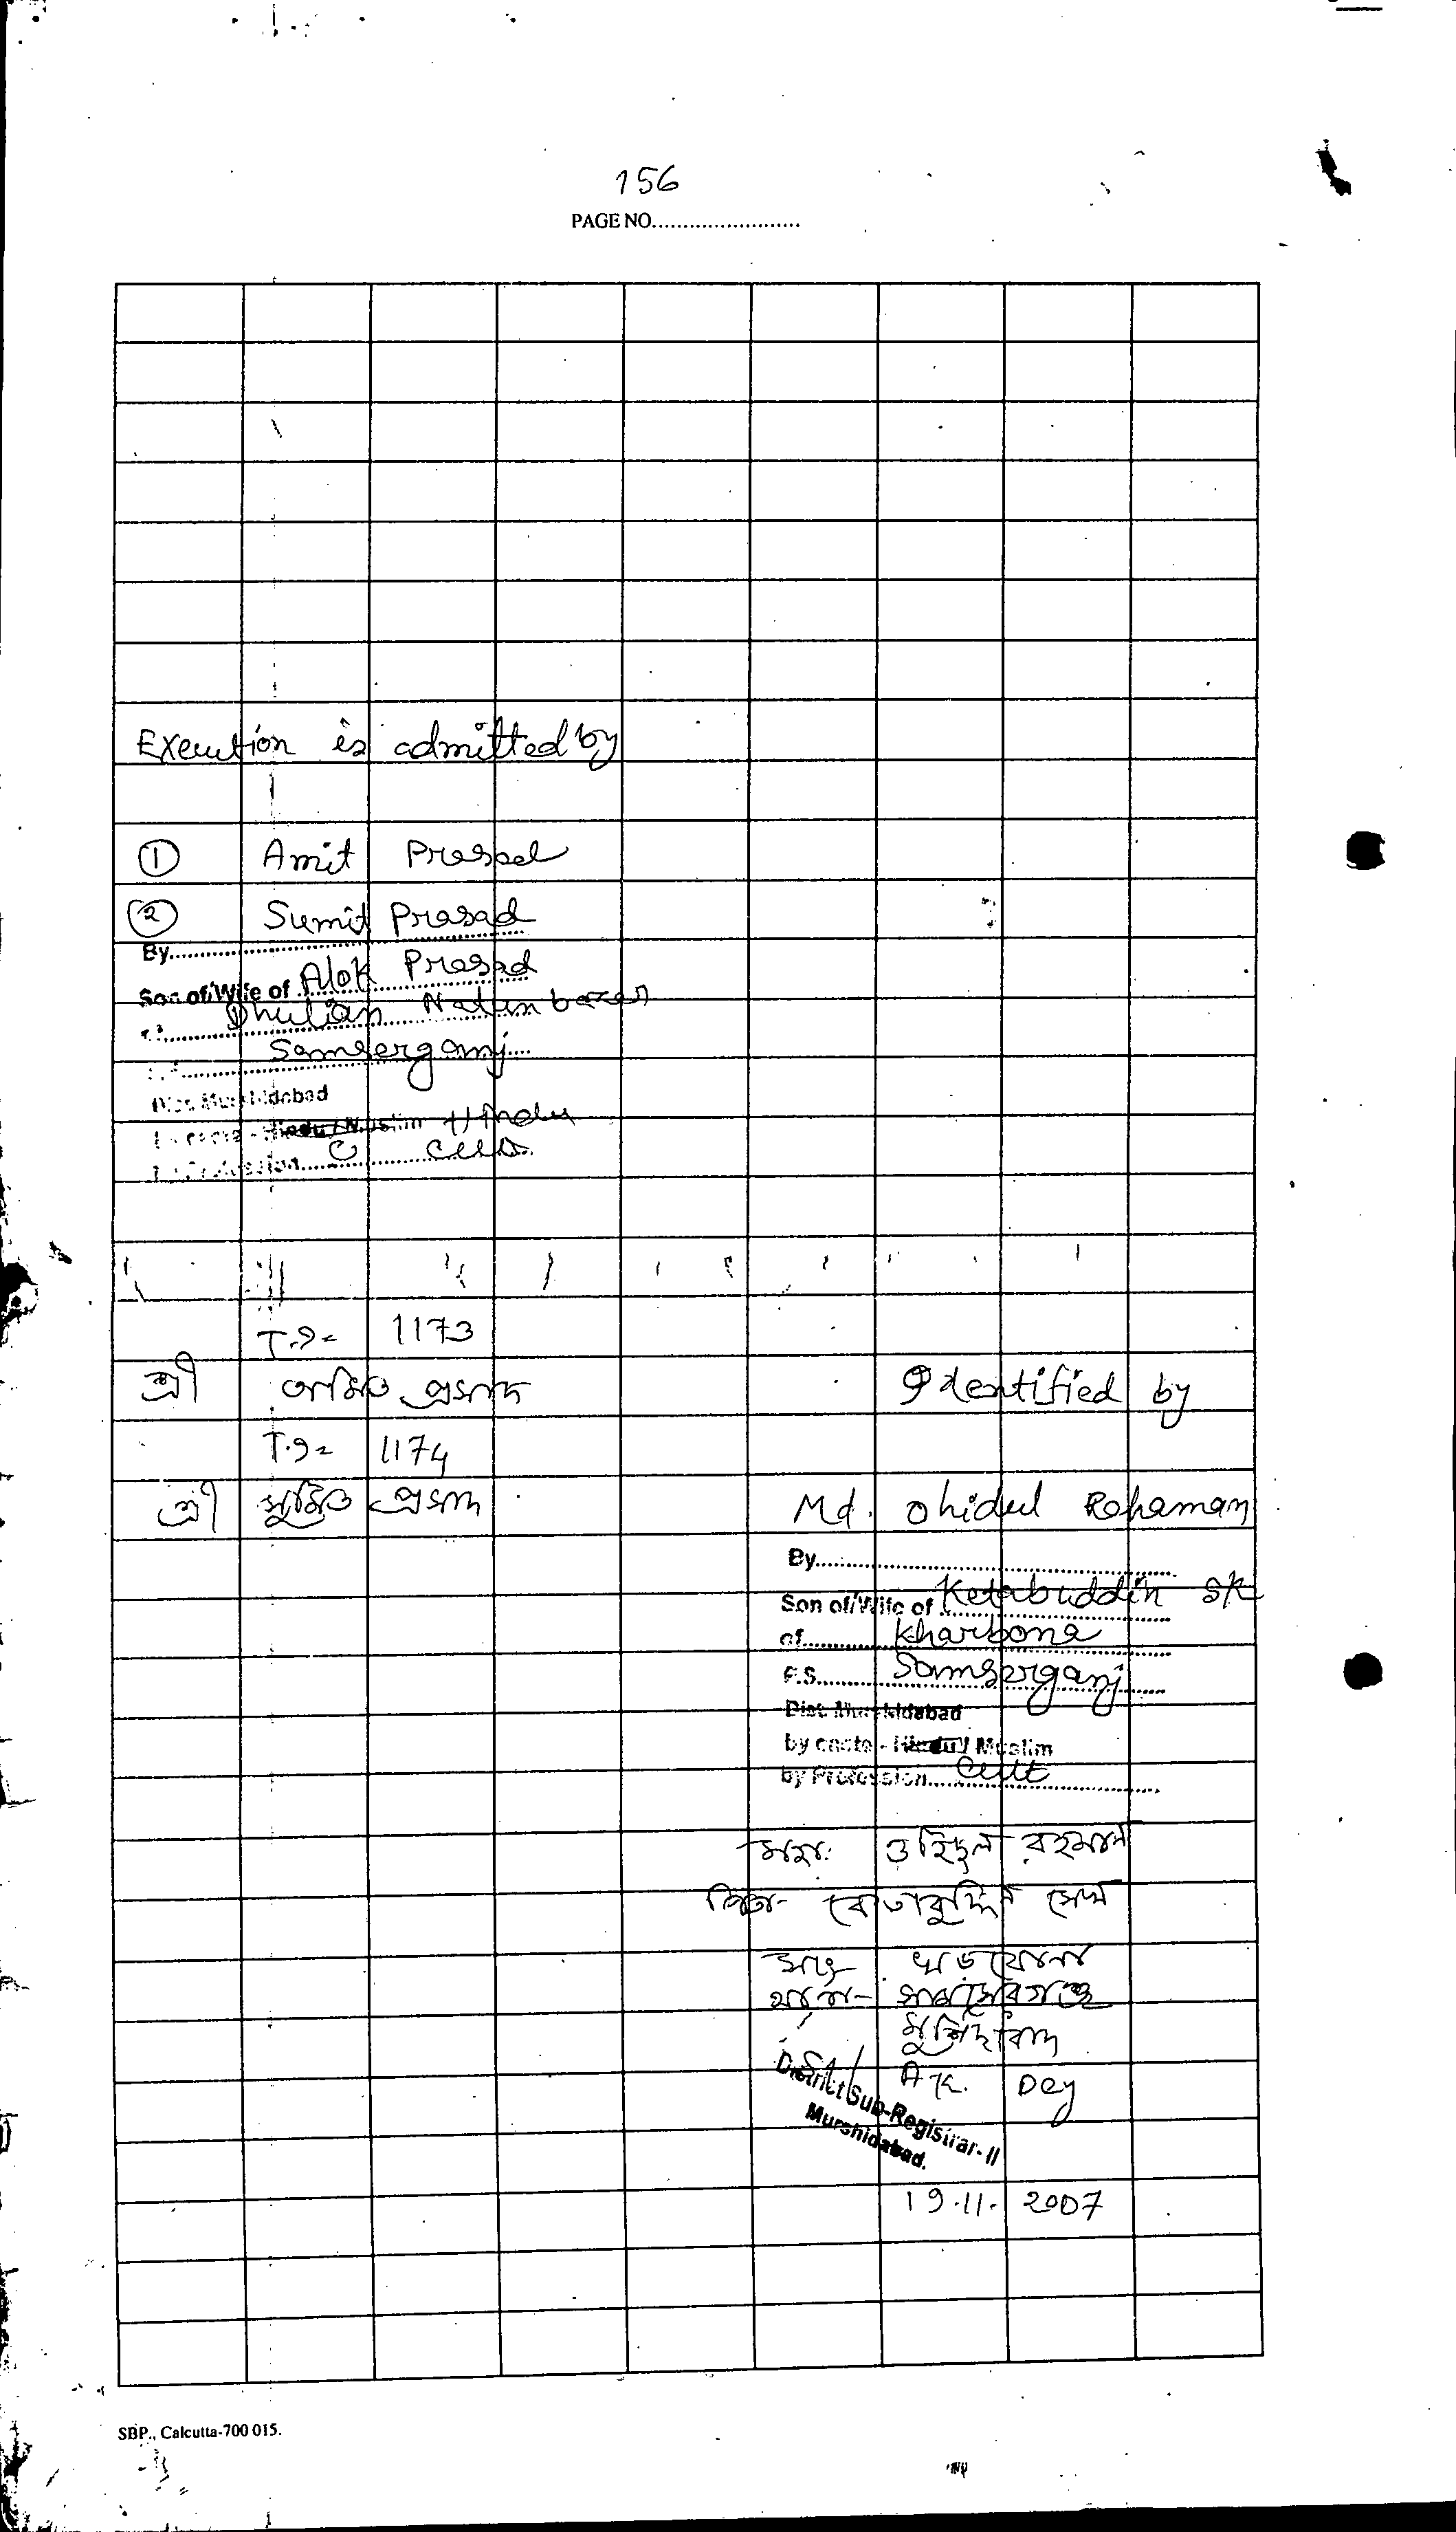 156
PAGE NO.........................
Execution is admitted by
① Amit Prasad
② Sumit Prasad
By..............................
Son of/Wife of Alok Prasad
Dhulian Natun bazar
Samserganj
Dist. Murshidabad
Hindu / Muslim Hindu
T.I= 1173
শ্রী অমিত প্রসাদ
T.I= 1174
শ্রী সুমিত প্রসাদ
Identified by
Md. Ohidul Rohaman
By..............................
Son of/Wife of Ketabuddin SK
of Kharbona
P.S. Samserganj
Dist. Murshidabad
by caste - Hindu / Muslim
by Profession Cult
মহাঃ ওহিদুল রহমান
পিতা- কেতাবুদ্দিন সেখ
সাং খড়বোনা
থানা- সামসেরগঞ্জ
মুর্শিদাবাদ
Sd/ A.K. Dey
District Sub-Registrar-II
Murshidabad.
19.11.2007
SBP., Calcutta-700 015.